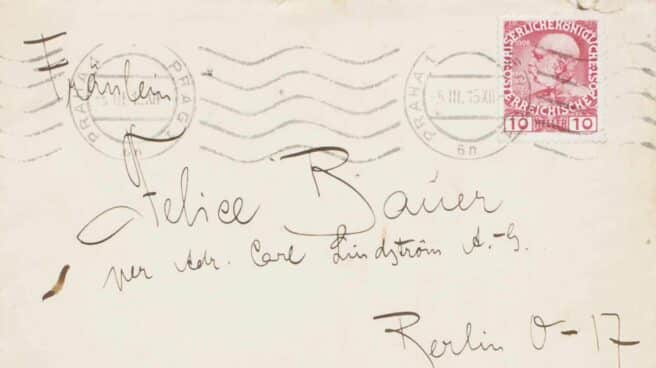 Fräulein
Felice Bauer
per Adr. Carl Lindström A.-G.
Berlin O-17
PRAHA 1 PRAG 1
III. 15 XII
6n
PRAHA 1
III. 15 XII
6n
1908
KAISERLICHE KÖNIGLICHE
ÖSTERREICHISCHE
10 HELLER 10